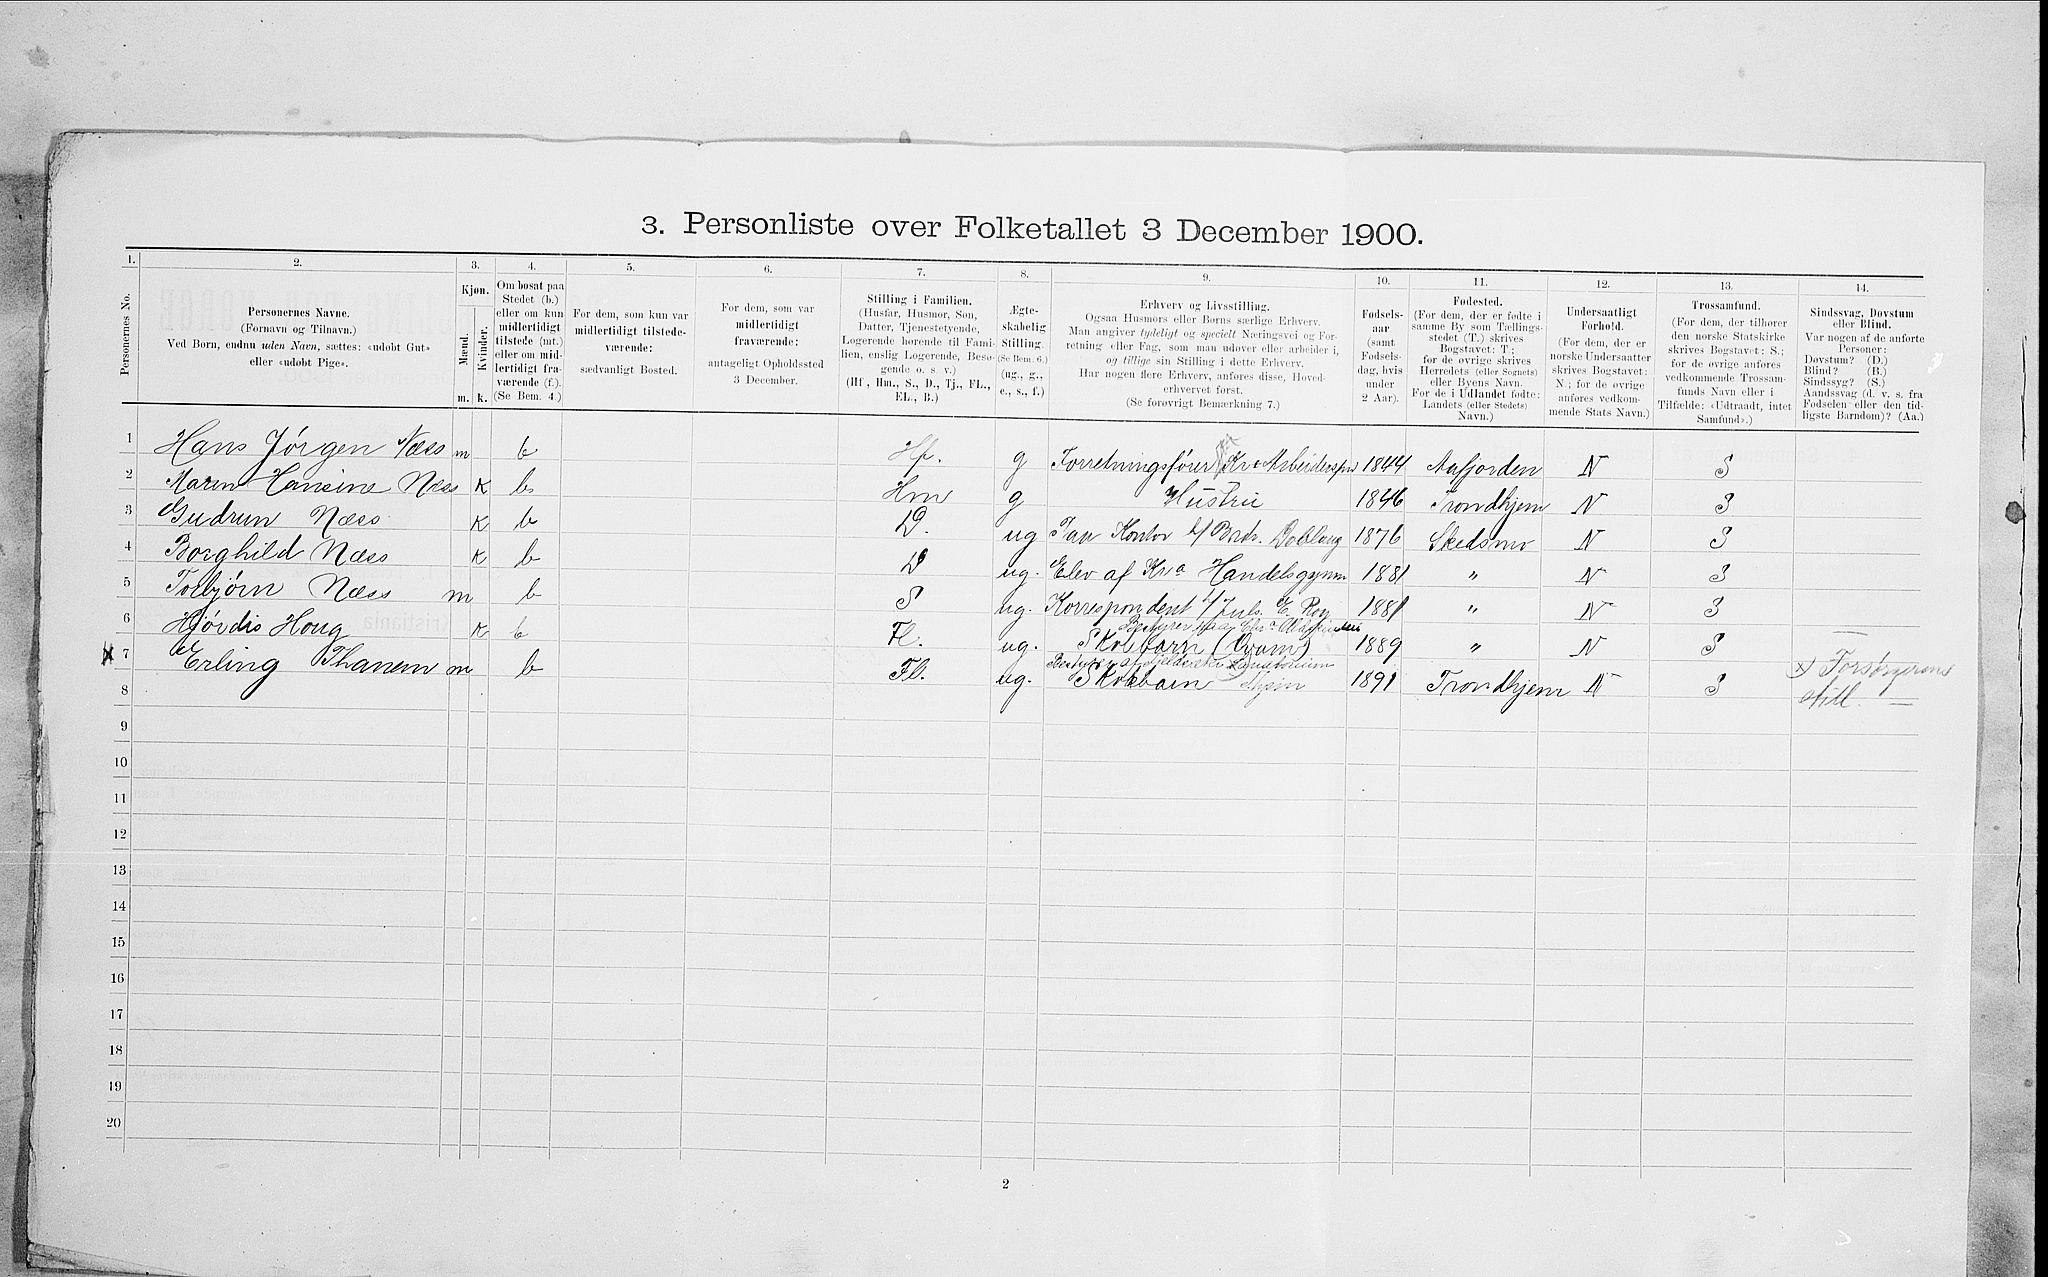 3. Personliste over Folketallet 3 December 1900.
1. 2. 3. 4. 5. 6. 7. 8. 9. 10. 11. 12. 13. 14.
Personernes No.
Personernes Navne.
(Fornavn og Tilnavn.)
Ved Børn, endnu uden Navn, sættes: «udøbt Gut»
eller «udøbt Pige».
Kjøn.
Mænd.
Kvinder.
m. k.
Om bosat paa
Stedet (b.)
eller om kun
midlertidigt
tilstede (mt.)
eller om mid-
lertidigt fra-
værende (f.).
(Se Bem. 4.)
For dem, som kun var
midlertidigt tilstede-
værende:
sædvanligt Bosted.
For dem, som var
midlertidigt
fraværende:
antageligt Opholdssted
3 December.
Stilling i Familien.
(Husfar, Husmor, Søn,
Datter, Tjenestetyende,
Logerende hørende til Fami-
lien, enslig Logerende, Besø-
gende o. s. v.)
(Hf, Hm., S., D., Tj., FL.,
EL., B.)
Ægte-
skabelig
Stilling.
(Se Bem. 6.)
(ug., g.,
e., s., f.)
Erhverv og Livsstilling.
Ogsaa Husmors eller Børns særlige Erhverv.
Man angiver tydeligt og specielt Næringsvei og For-
retning eller Fag, som man udøver eller arbeider i,
og tillige sin Stilling i dette Erhverv.
Har nogen flere Erhverv, anføres disse, Hoved-
erhvervet først.
(Se forøvrigt Bemærkning 7.)
Fødsels-
aar
(samt
Fødsels-
dag, hvis
under
2 Aar).
Fødested.
(For dem, der er fødte i
samme By som Tællings-
stedet (T.) skrives
Bogstavet: T.;
for de øvrige skrives
Herredets (eller Sognets)
eller Byens Navn.
For de i Udlandet fødte:
Landets (eller Stedets)
Navn.)
Undersaatligt
Forhold.
(For dem, der er
norske Undersaatter
skrives Bogstavet:
N.; for de øvrige
anføres vedkom-
mende Stats Navn.)
Trossamfund.
(For dem, der tilhører
den norske Statskirke
skrives Bogstavet: S.;
for de øvrige anføres
vedkommende Trossam-
funds Navn eller i
Tilfælde: «Udtraadt, intet
Samfund».)
Sindssvag, Døvstum
eller Blind.
Var nogen af de anførte
Personer:
Døvstum? (D.)
Blind? (B.)
Sindssyg? (S.)
Aandssvag (d. v. s. fra
Fødselen eller den tid-
ligste Barndom)? (Aa.)
1 Hans Jørgen Næss m b Hf. g Forretningsfører Kra Arbeidersp 1844 Aafjorden N S
2 Maren Hansine Næss K b Hm g Hustru 1846 Trondhjem N S
3 Gudrun Næss K b D. ug Paa Kontor b/ Brdr. Dobloug 1876 Skedsmo N S
4 Borghild Næss K b D ug. Elev af Kra Handelsgymn 1881 " N S
5 Torbjørn Næss m b S ug. Korrespondent b/ Juls. E. Roy 1881 " N S
Bestyrer paa
6 Hjørdis Houg K b Fl. ug. Skolbarn 1889 " N S —
Bestyrer af Sanatorium
x 7 Erling Thanem m b Fl. ug. Skolebarn Thjem 1891 Trondhjem N S x) Forsørgerens
8 still. —
9
10
11
12
13
14
15
16
17
18
19
20
2